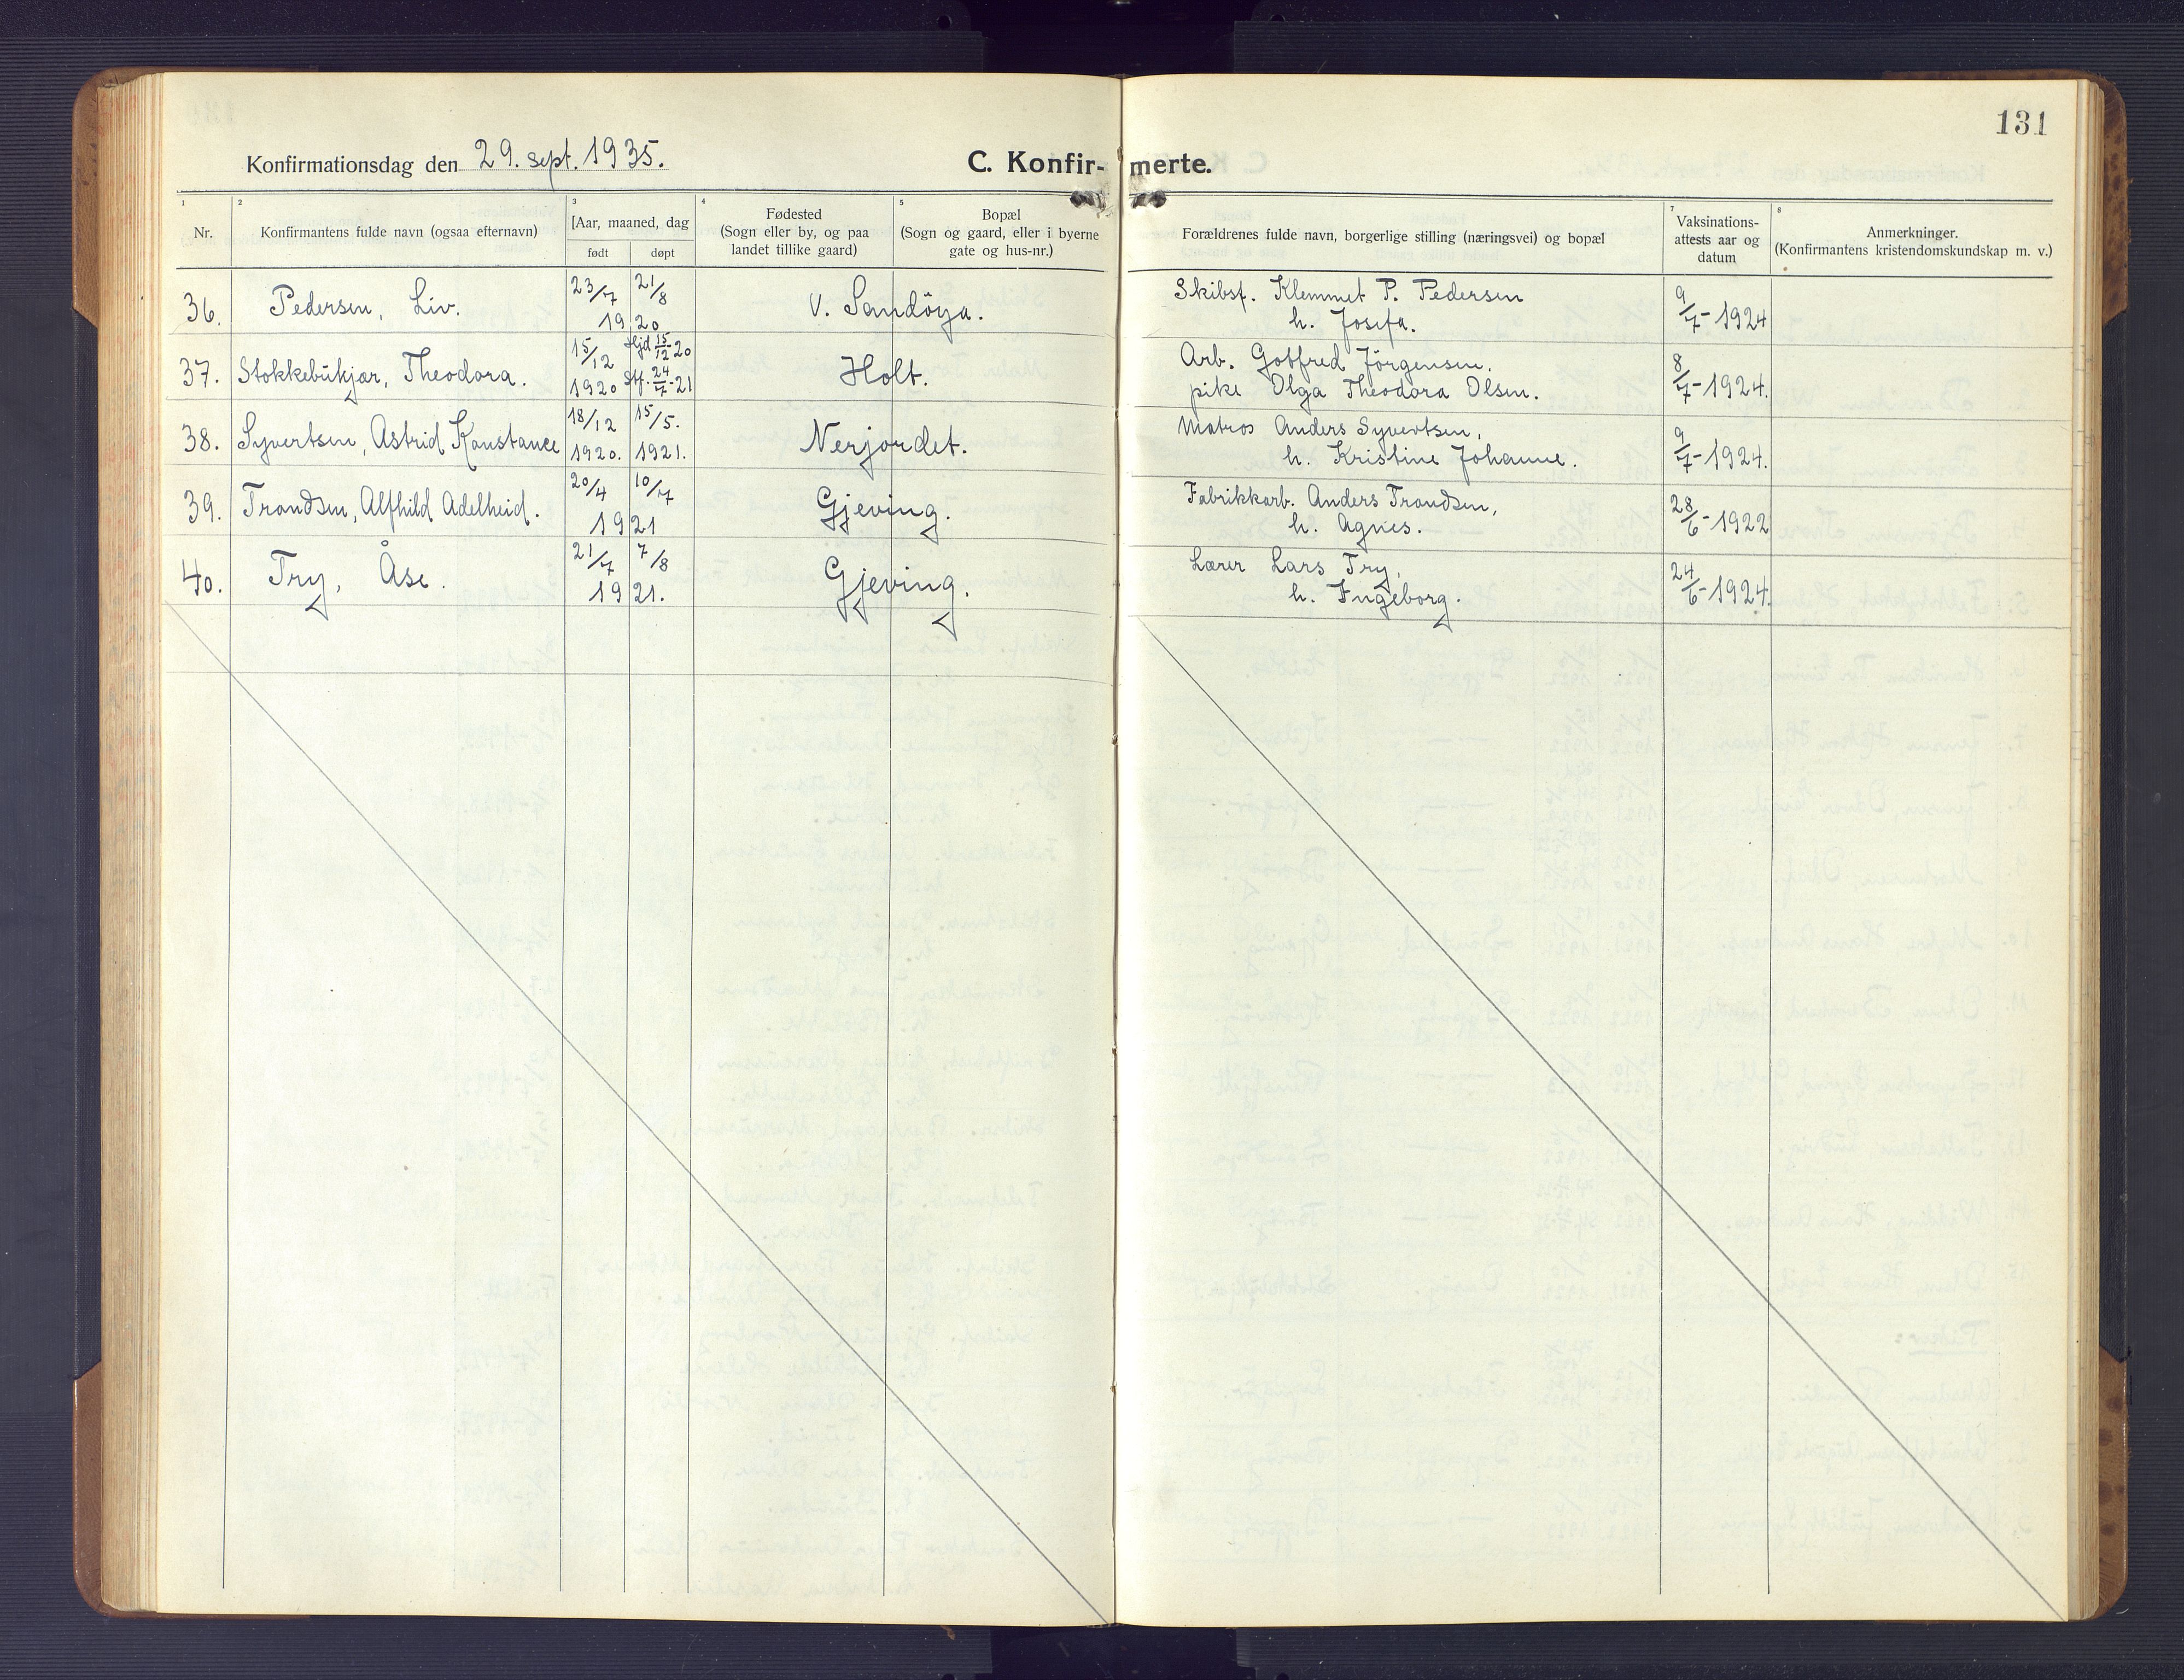 131
Konfirmationsdag den 29. sept. 1935.
C. Konfir-merte.
1 2 3 4 5 7 8
Nr.
Konfirmantens fulde navn (ogsaa efternavn)
[Aar, maaned, dag
født døpt
Fødested
(Sogn eller by, og paa
landet tillike gaard)
Bopæl
(Sogn og gaard, eller i byerne
gate og hus-nr.)
Forældrenes fulde navn, borgerlige stilling (næringsvei) og bopæl
Vaksinations-
attests aar og
datum
Anmerkninger.
(Konfirmantens kristendomskundskap m. v.)
36. Pedersen, Liv. 23/7 21/8 1920 V. Sandöya. Skibsf. Klemmet P. Pedersen 9/7-1924
h. Josefa.
37. Stokkebukjær, Theodora. 15/12 1920 Hjd 15/12-20 Holt. Arb. Gotfred Jörgensen, 8/7-1924.
Stf. 24/7-21 pike Olga Theodora Olsen.
38. Syvertsen, Astrid Konstance 18/12 1920. 15/5. 1921. Nerjordet. Matros Anders Syvertsen, 9/7-1924.
h. Kristine Johanne.
39. Trondsen, Alfhild Adelheid. 20/4 10/7 1921 Gjeving. Fabrikkarb. Anders Trondsen, 28/6-1922
h. Agnes.
40. Try, Åse. 21/7 7/8 1921. Gjeving. Lærer Lars Try, 24/6-1924.
h. Ingeborg.